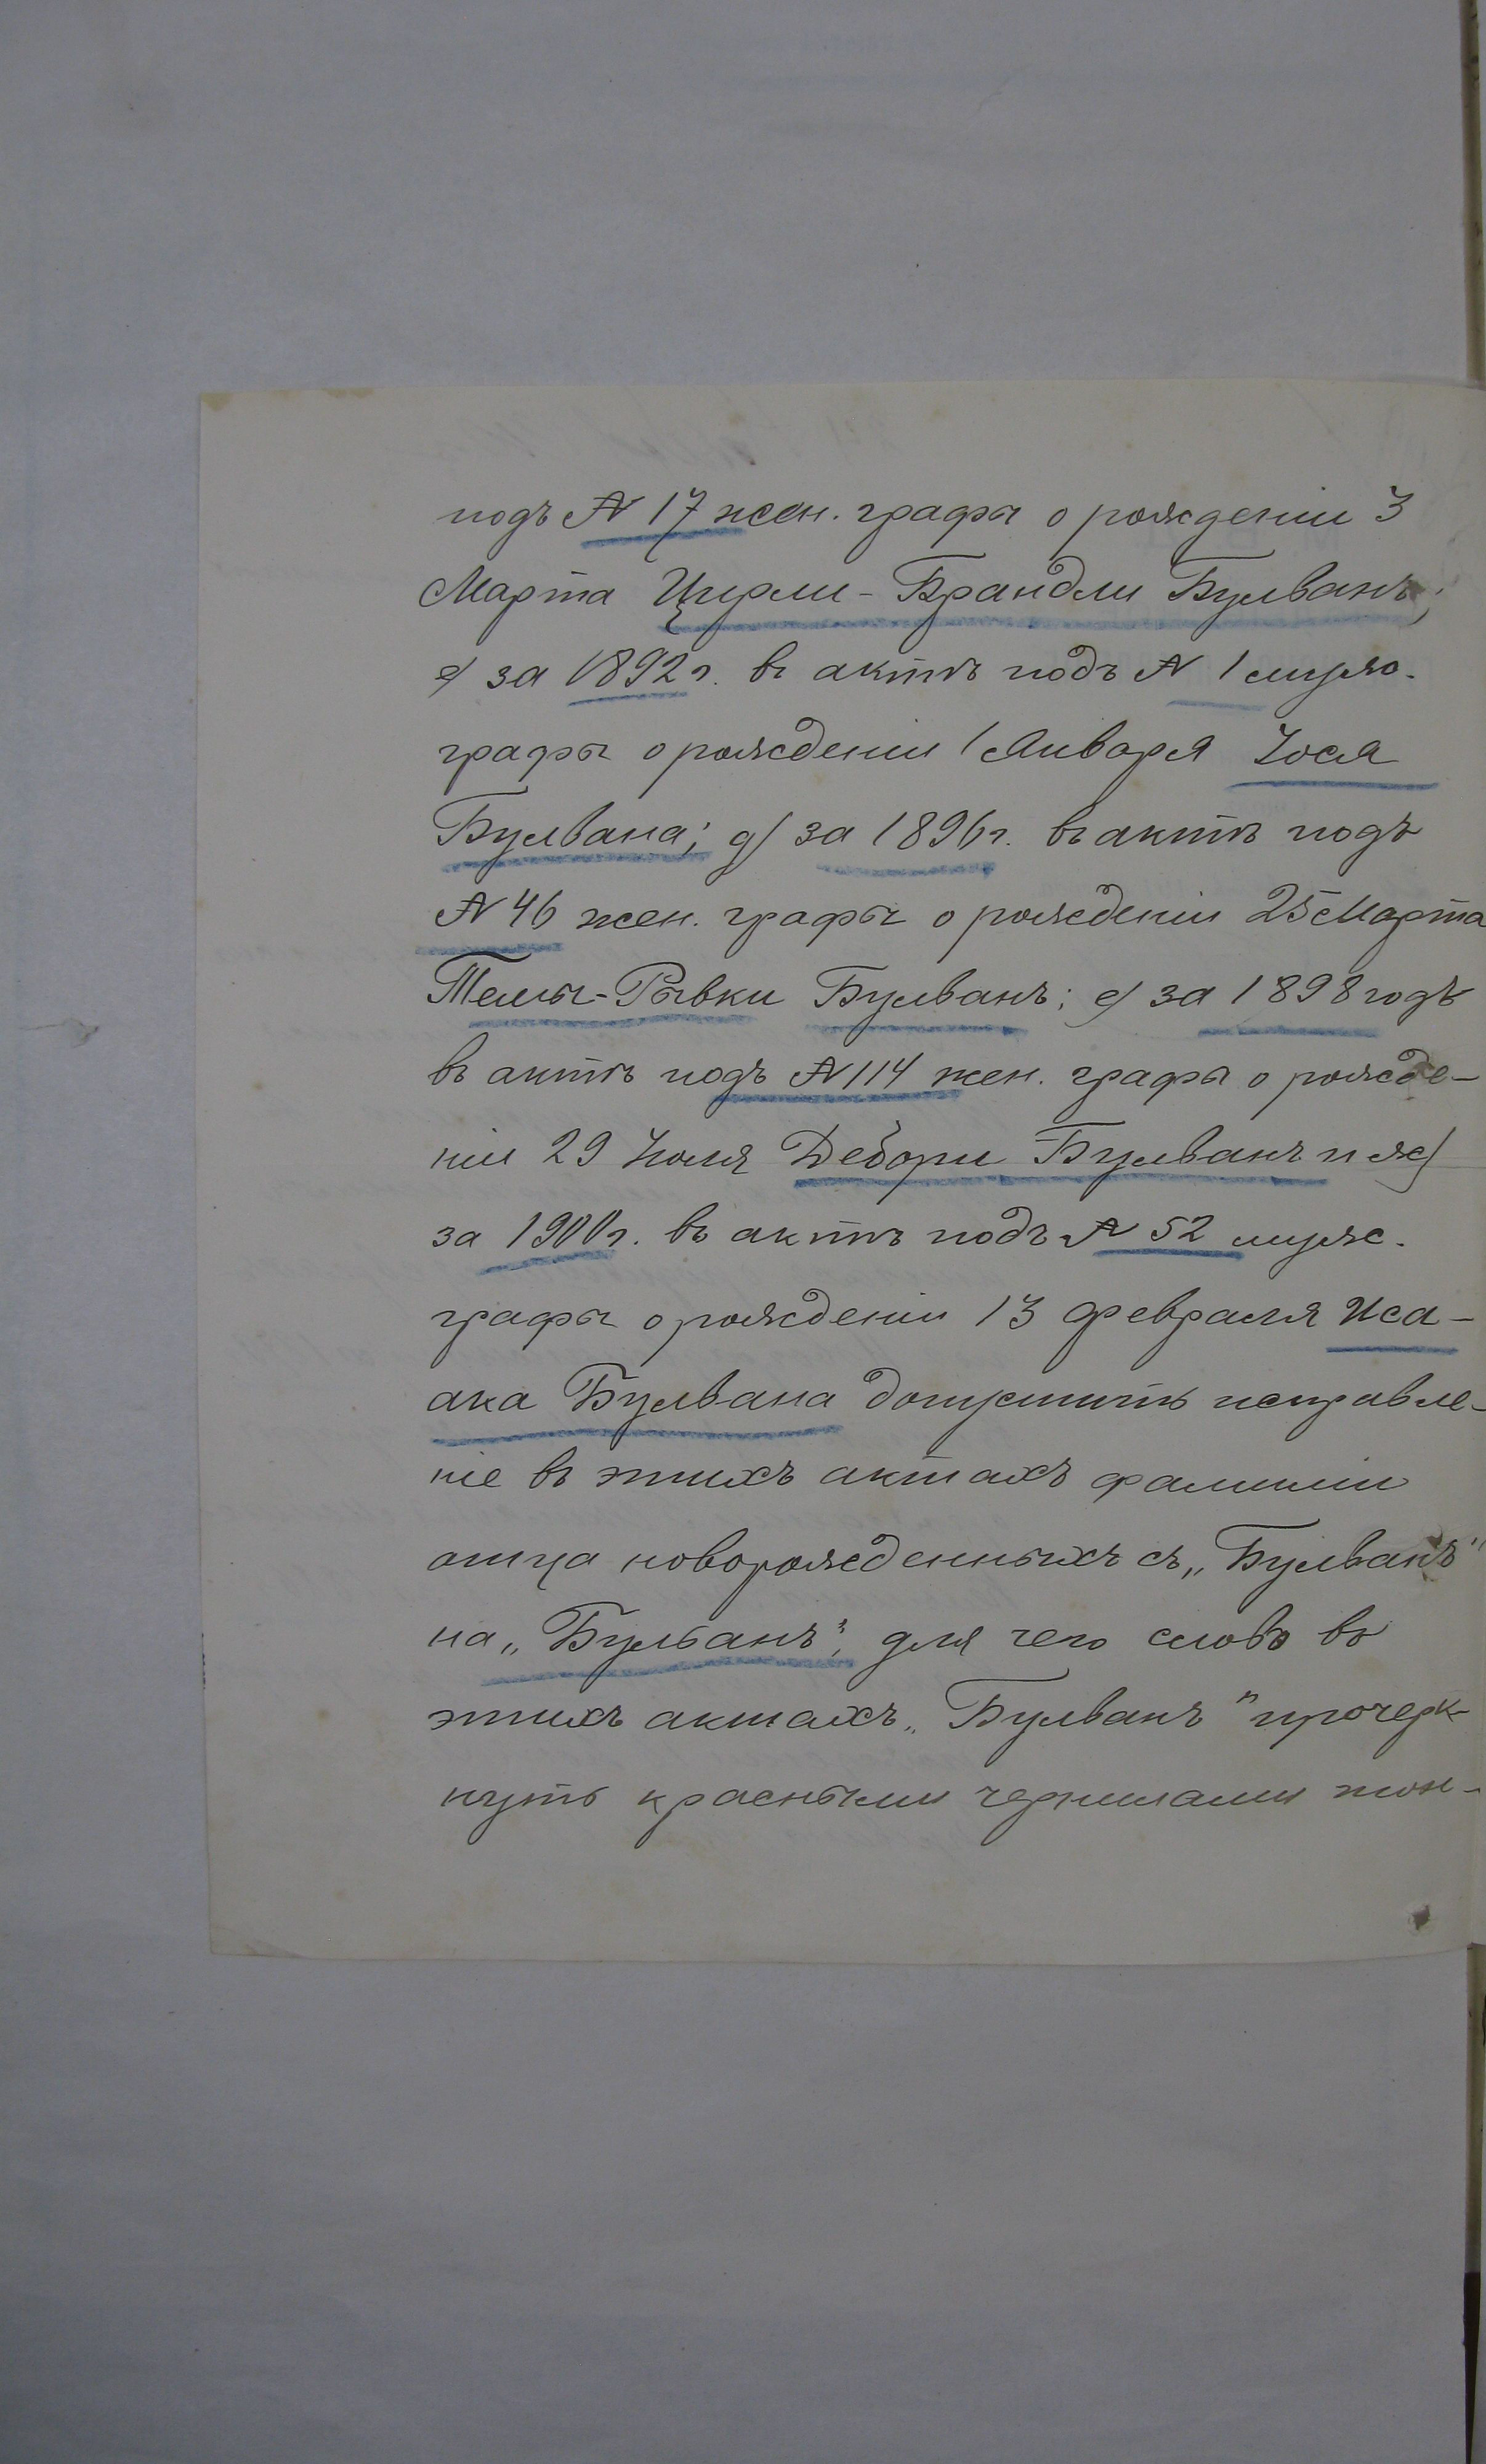 подъ № 17 жен. графы о рожденіи 3
Марта Цирли-Брандли Булванъ;
г/ за 1892 г. въ актѣ подъ № 1 муж.
графы о рожденіи 1 Января Іося
Булвана; д/ за 1896 г. въ актѣ подъ
№ 46 жен. графы о рожденіи 25 Марта
Темы-Рывки Булванъ; е/ за 1898 годъ
въ актѣ подъ № 114 жен. графы о рожде-
ніи 29 Іюля Деборы Булванъ и ж/
за 1900 г. въ актѣ подъ № 52 муж.
графы о рожденіи 13 Февраля Иса-
ака Булвана допустить исправле-
ніе въ этихъ актахъ фамиліи
отца новорожденныхъ съ „Булванъ"
на „Бульбанъ", для чего слово въ
этихъ актахъ „Булванъ" прочерк-
нуть красными чернилами тон-